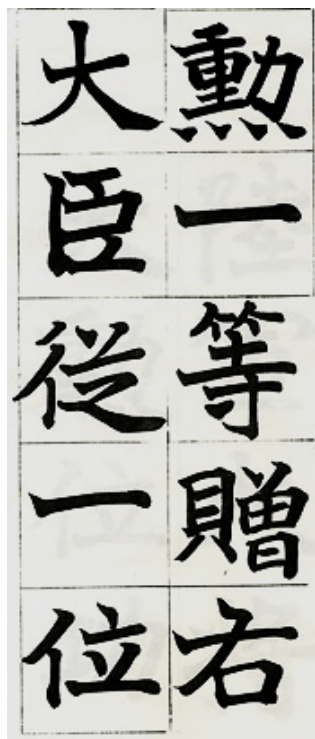 勲一等贈右
大臣従一位